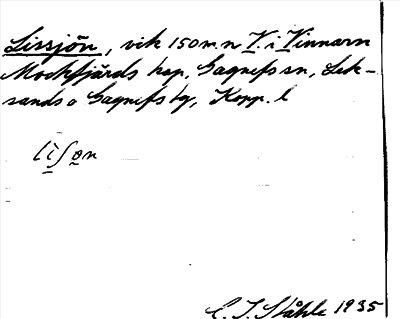 Lissjön, vik 150 m n V. i Vinnarn
Mockfjärds kap, Gagnefs sn, Lek-
sands o Gagnefs tg, Kopp. l
C. I. Ståhle 1935